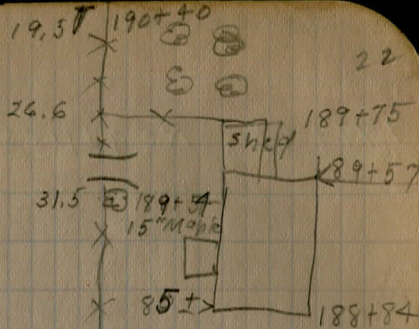 19.5 190+40
22
26.6 189+75
shed
189+57
31.5 189+54
15" Maple
85±
188+84